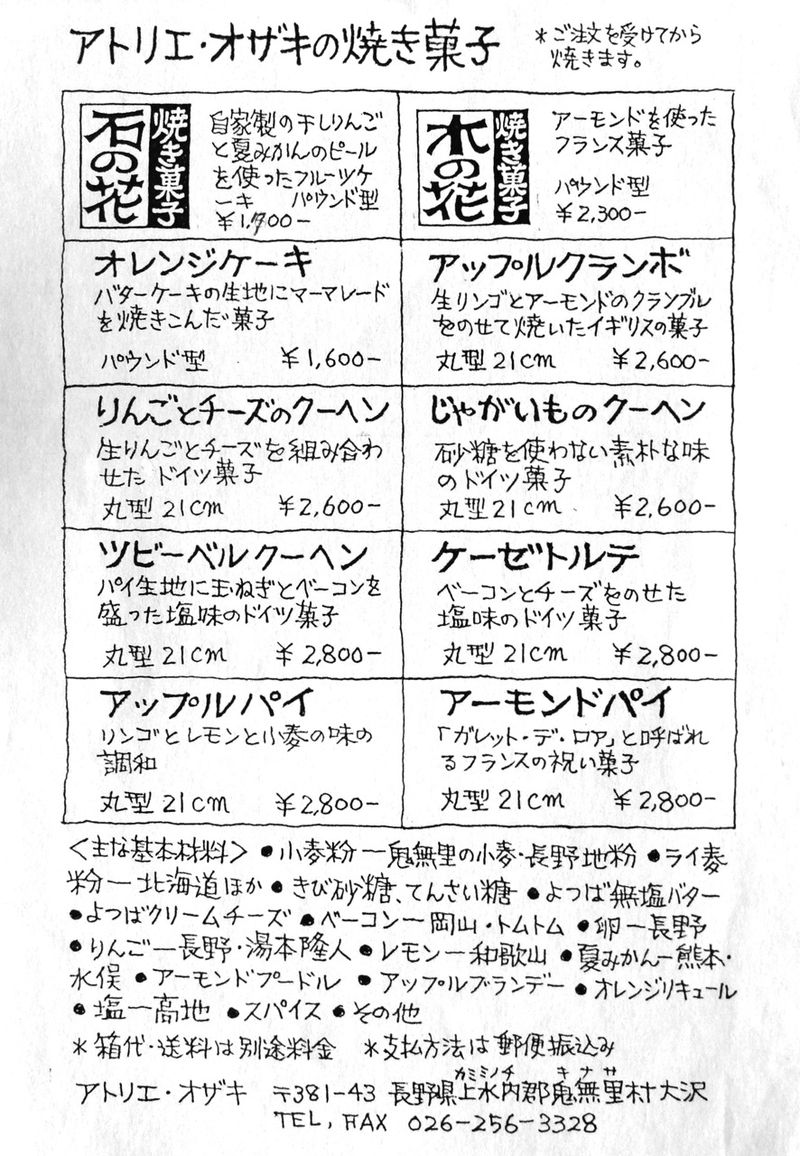 アトリエ・オザキの焼き菓子
*ご注文を受けてから
焼きます。
石の花
焼き菓子
自家製の干しりんご
と夏みかんのピール
を使ったフルーツケ
ーキ パウンド型
¥1,700-
木の花
焼き菓子
アーモンドを使った
フランス菓子
パウンド型
¥2,300-
オレンジケーキ
バターケーキの生地にマーマレード
を焼きこんだ菓子
パウンド型 ¥1,600-
アップルクランボ
生リンゴとアーモンドのクランブル
をのせて焼いたイギリスの菓子
丸型21cm ¥2,600-
りんごとチーズのクーヘン
生りんごとチーズを組み合わ
せたドイツ菓子
丸型21cm ¥2,600-
じゃがいものクーヘン
砂糖を使わない素朴な味
のドイツ菓子
丸型21cm ¥2,600-
ツビーベルクーヘン
パイ生地に玉ねぎとベーコンを
盛った塩味のドイツ菓子
丸型21cm ¥2,800-
ケーゼトルテ
ベーコンとチーズをのせた
塩味のドイツ菓子
丸型21cm ¥2,800-
アップルパイ
リンゴとレモンと小麦の味の
調和
丸型21cm ¥2,800-
アーモンドパイ
「ガレット・デ・ロア」と呼ばれ
るフランスの祝い菓子
丸型21cm ¥2,800-
<主な基本材料> ●小麦粉ー鬼無里の小麦・長野地粉 ●ライ麦
粉ー北海道ほか ●きび砂糖、てんさい糖 ●よつば無塩バター
●よつばクリームチーズ ●ベーコンー岡山・トムトム ●卵ー長野
●りんごー長野・湯本隆人 ●レモンー和歌山 ●夏みかんー熊本・
水俣 ●アーモンドプードル ●アップルブランデー ●オレンジリキュール
●塩ー高地 ●スパイス ●その他
*箱代・送料は別途料金 *支払方法は郵便振込み
カミミノチ キナサ
アトリエ・オザキ 〒381-43 長野県上水内郡鬼無里村大沢
TEL, FAX 026-256-3328